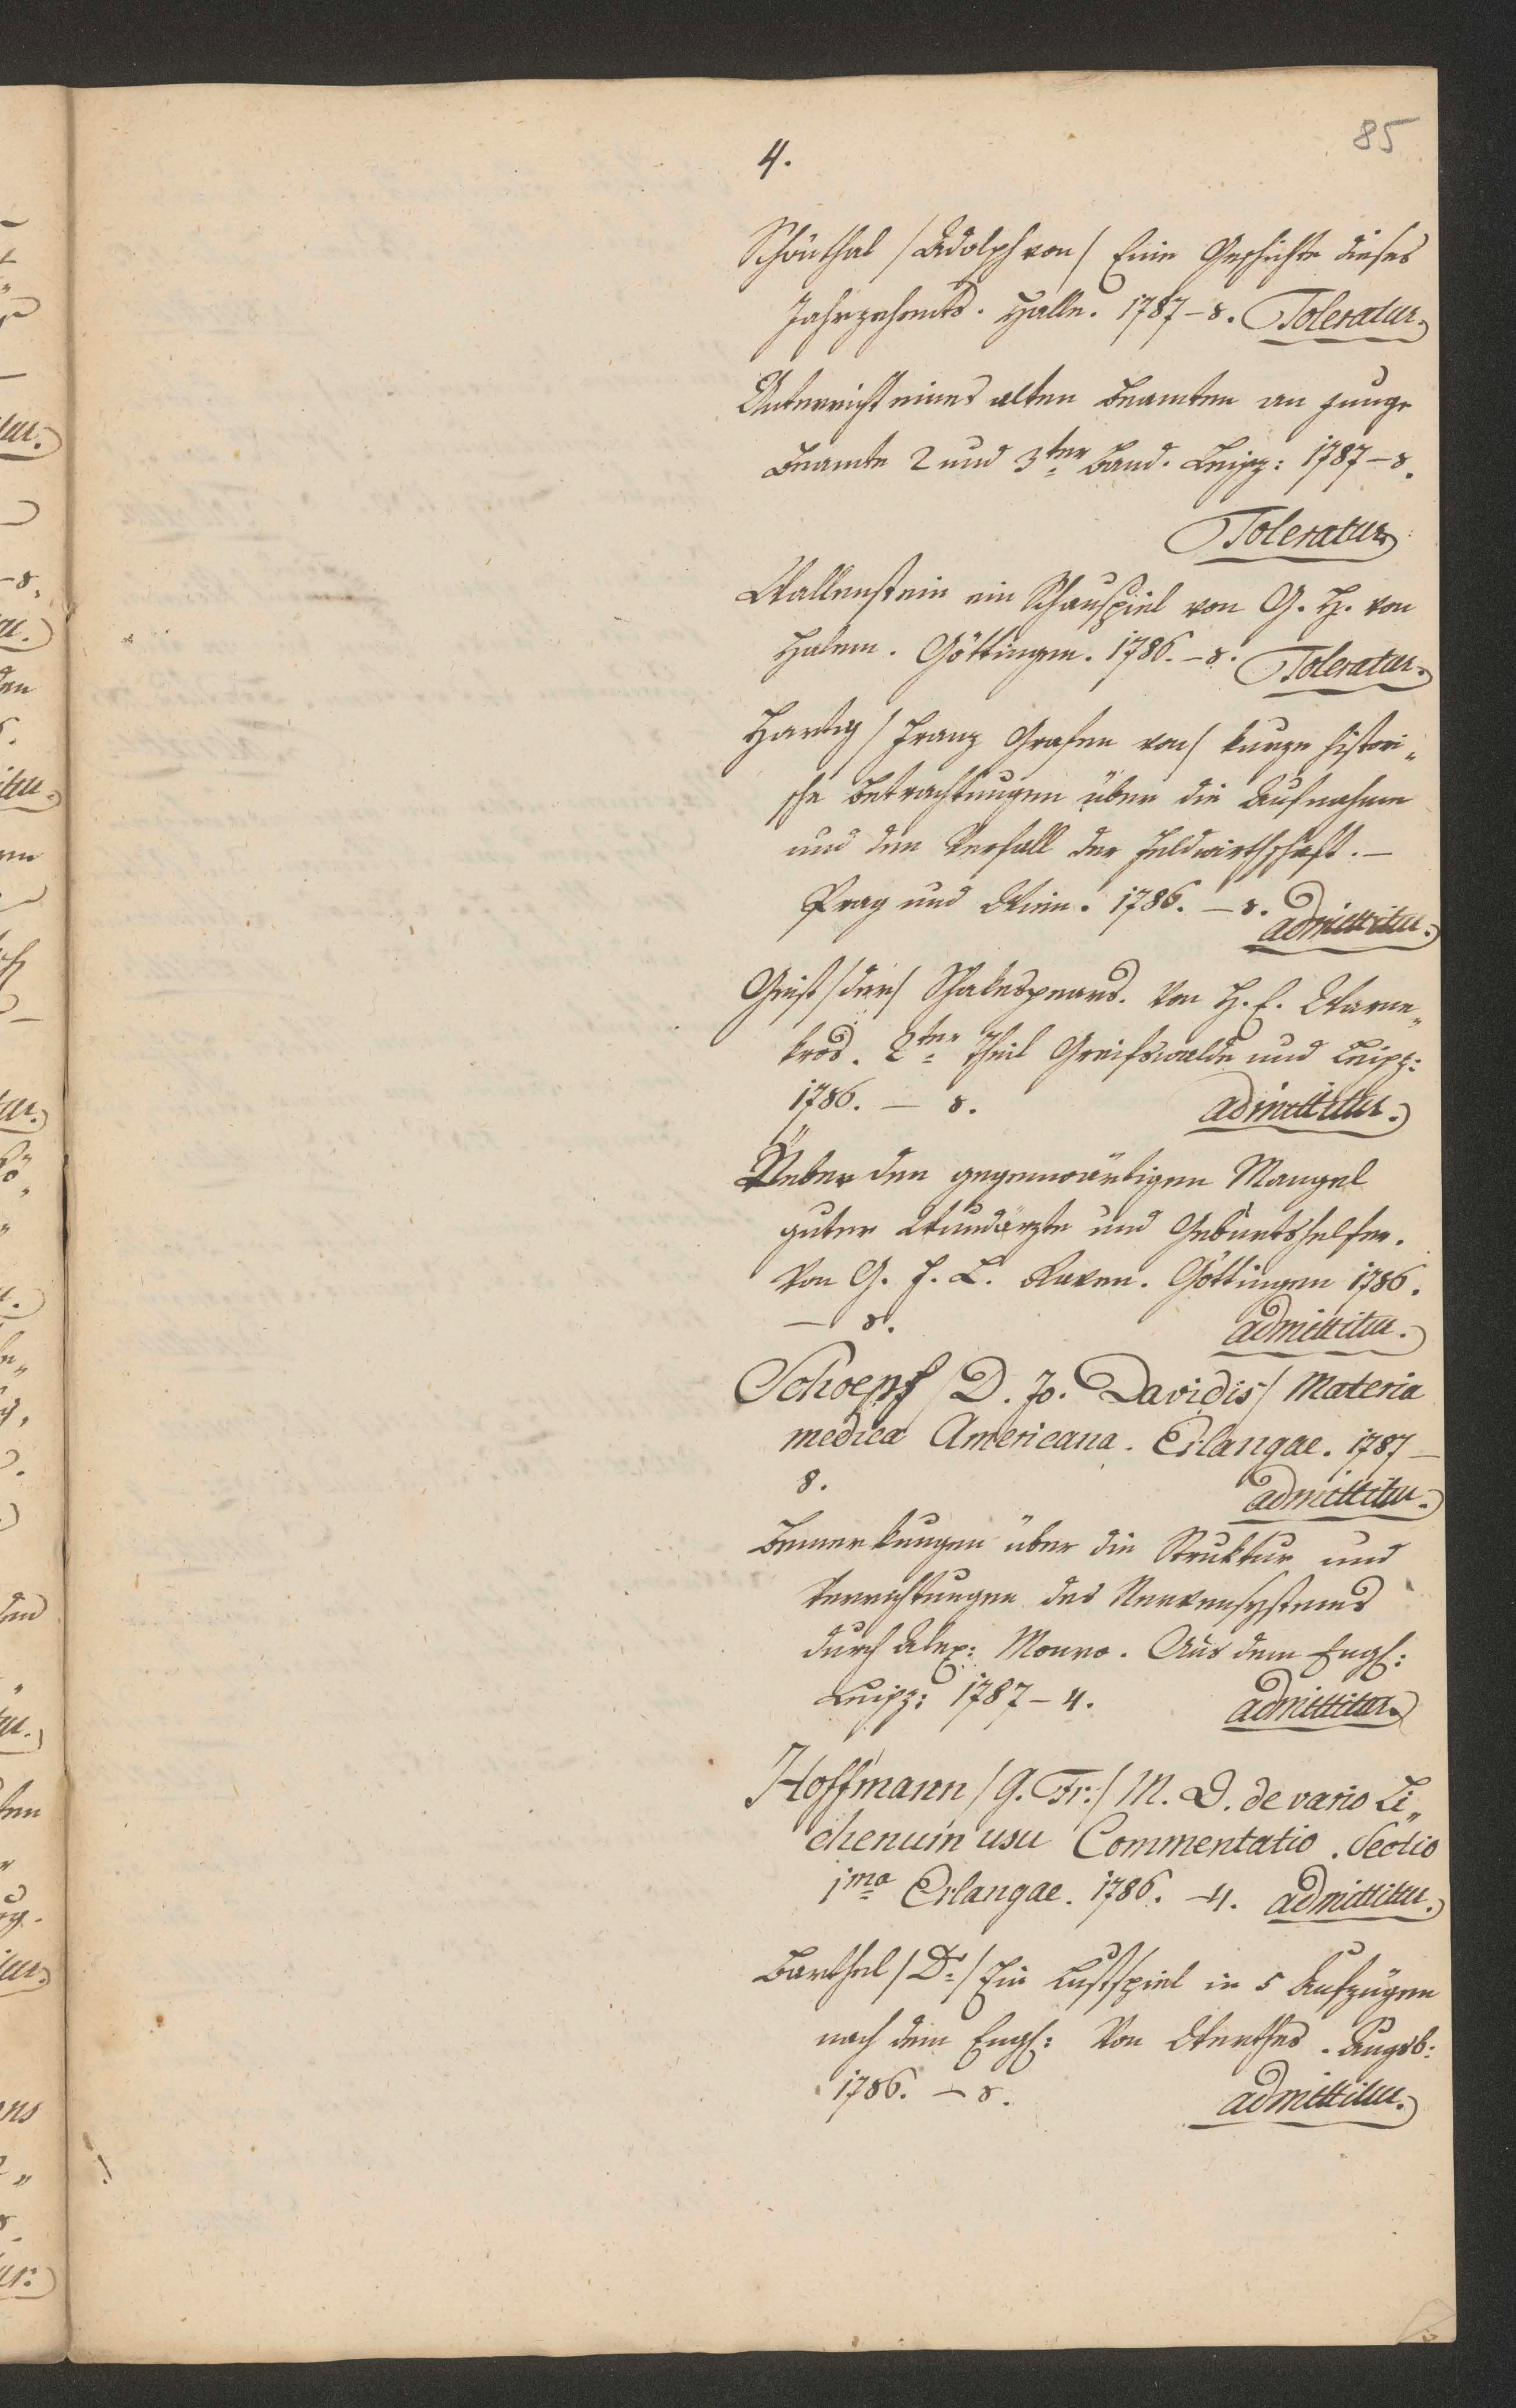 85
4.
Schönthal /Adolph von/ Eine Geschichte dieses
Jahrzehends. Halle. 1787–8. Toleratur.
Unterricht eines alten Beamten an junge
Beamte 2 und 3ter Band. Leipz: 1787–8.
Toleratur
Wallenstein ein Schauspiel von G. H. von
Halem. Göttingen. 1786.–8. Toleratur.
Hartig /Franz Grafen von/ kurze histori„
sche Betrachtungen über die Aufnahme
und den Verfall der Feldwirthschaft.–
Prag und Wien. 1786. –8. admittitur.
Geist /der/ Schakespears. Von H. E. Warne„
kros. 2ter Theil Greifswalde und Leipz:
1786. – 8. admittitur.
Ueber den gegenwärtigen Mangel
guter Wundärzte und Geburtshelfer.
Von G. F. L. Raven. Göttingen 1786.
– 8. admittitur.
Schoepf /D. Jo. Davidis/ Materia
medica Americana. Erlangae. 1787–
8. admittitur.
Bemerkungen über die Struktur und
Verrichtungen des Nervensystems
durch Alex: Monro. Aus dem Engl:
Leipz: 1787–4. admittitur.
Hoffmann /G. Fr:/ M. D. de vario Li„
chenum usu Commentatio. Sectio
1ma Erlangae. 1786. –4. admittitur.
Barthel /Dr/ Ein Lustspiel in 5 Aufzügen
nach dem Engl: Von Werthes. Augsb:
1786. –8. admittitur.